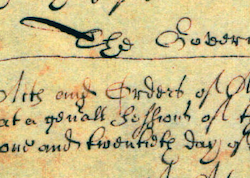 The Govern
Acts and Orders of
at a genall Sessions of t
one and twentieth day of